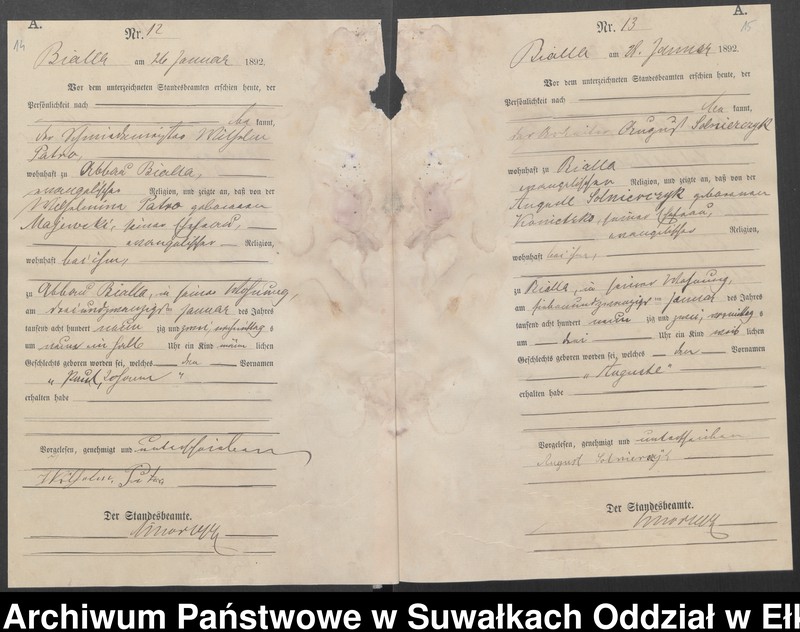 A.
14
Nr. 12
Bialla am 26 Januar 1892.
Vor dem unterzeichneten Standesbeamten erschien heute, der
Persönlichkeit nach
be kannt,
der Schmiedemeister Wilhelm
Patro,
wohnhaft zu Abbau Bialla,
evangelischer Religion, und zeigte an, daß von der
Wilhelmine Patro geborenen
Majewski, seiner Ehefrau,
evangelischer Religion,
wohnhaft bei ihm,
zu Abbau Bialla, in seiner Wohnung,
am dreiundzwanzigsten Januar des Jahres
tausend acht hundert neun zig und zwei, nachmittags
um neun ein halb Uhr ein Kind männ lichen
Geschlechts geboren worden sei, welches den Vornamen
"Paul Johann"
erhalten habe
Vorgelesen, genehmigt und unterschrieben
Wilhelm Patro
Der Standesbeamte.
A.
15
Nr. 13
Bialla am 28. Januar 1892.
Vor dem unterzeichneten Standesbeamten erschien heute, der
Persönlichkeit nach
be kannt,
der Arbeiter August Solnierczyk
wohnhaft zu Bialla
evangelischer Religion, und zeigte an, daß von der
Auguste Solnierczyk geborenen
seiner Ehefrau,
evangelischer Religion,
wohnhaft bei ihm,
zu Bialla, in seiner Wohnung,
am siebenundzwanzigsten Januar des Jahres
tausend acht hundert neun zig und zwei, vormittags
um drei Uhr ein Kind weib lichen
Geschlechts geboren worden sei, welches den Vornamen
"Auguste"
erhalten habe
Vorgelesen, genehmigt und unterschrieben
August Solnierczyk
Der Standesbeamte.
Archiwum Państwowe w Suwałkach Oddział w Ełk